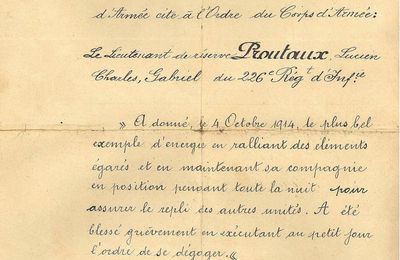 d'Armée cite à l'Ordre du Corps d'Armée:
Le Lieutenant de réserve Proutaux, Lucien
Charles, Gabriel du 226e Régt d'Infrie
" A donné, le 4 Octobre 1914, le plus bel
exemple d'energie en ralliant des éléments
égarés et en maintenant sa compagnie
en position pendant toute la nuit pour
assurer le repli des autres unités. A été
blessé grièvement en exécutant au petit jour
l'ordre de se dégager. "